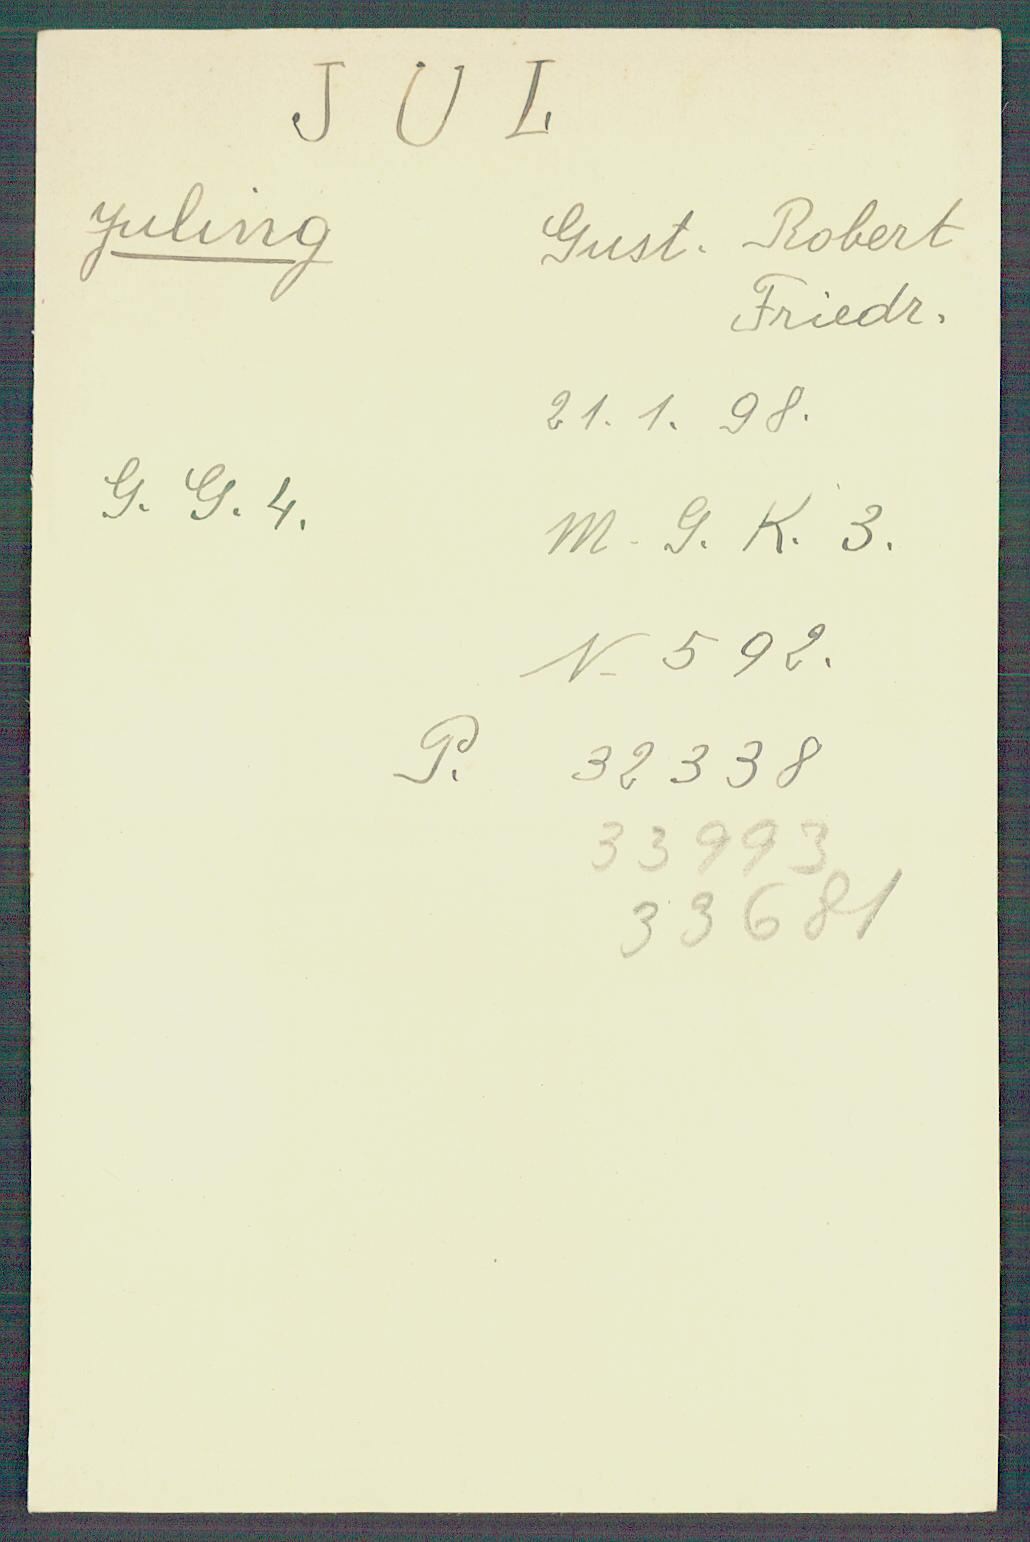 J U L
Juling Gust. Robert
Friedr.
21. 1. 98.
G. G. 4.
M. G. K. 3.
N 592.
P. 32338
33993
33681